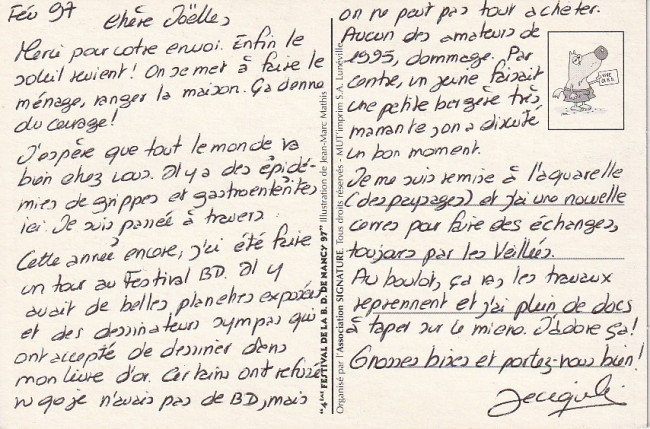 Fév 97
Chère Joëlle,
Merci pour votre envoi. Enfin le
soleil revient! On se met à faire le
ménage, ranger la maison. Ça donne
du courage!
J'espère que tout le monde va
bien chez vous. Il y a des épidé-
mies de grippes et gastroentérites
ici. Je suis passée à travers.
Cette année encore, j'ai été faire
un tour au Festival BD. Il y
avait de belles planches exposées
et des dessinateurs sympas qui
ont accepté de dessiner dans
mon livre d'or. Certains ont refusé
vu que je n'avais pas de BD, mais
on ne peut pas tout acheter.
Aucun des amateurs de
1995, dommage. Par
contre, un jeune faisait
une petite bergère très
marrante, on a discuté
un bon moment.
Je me suis remise à l'aquarelle
(des paysages) et j'ai une nouvelle
corres pour faire des échanges,
toujours par les Veillées.
Au boulot, ça va, les travaux
reprennent et j'ai plein de docs
à taper sur le micro. J'adore ça!
Grosses bises et portez-vous bien!
"4èmes FESTIVAL DE LA B. D. DE NANCY 97" Illustration de Jean-Marc Mathis
Organisé par l'Association SIGNATURE. Tous droits réservés - MUT'imprim S.A. Lunéville